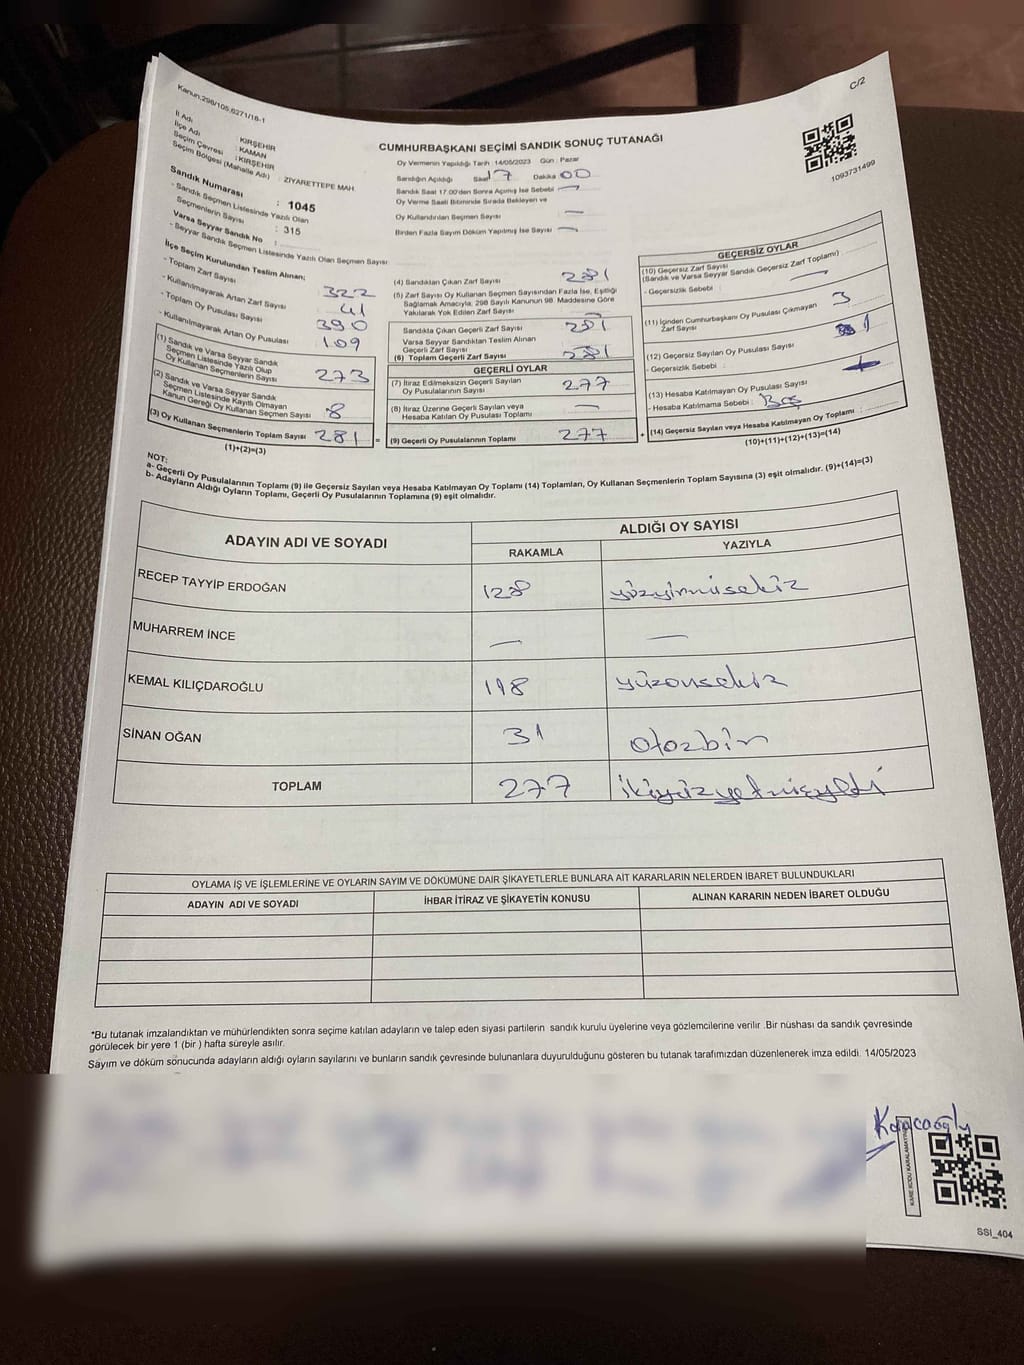 Kanun:298/105,6271/18-1
C/2
İl Adı : KIRŞEHİR
İlçe Adı : KAMAN
Seçim Çevresi : KIRŞEHİR
Seçim Bölgesi (Mahalle Adı) : ZİYARETTEPE MAH.
Sandık Numarası : 1045
- Sandık Seçmen Listesinde Yazılı Olan
Seçmenlerin Sayısı : 315
Varsa Seyyar Sandık No :
- Seyyar Sandık Seçmen Listesinde Yazılı Olan Seçmen Sayısı
CUMHURBAŞKANI SEÇİMİ SANDIK SONUÇ TUTANAĞI
Oy Vermenin Yapıldığı Tarih :14/05/2023 Gün : Pazar
Sandığın Açıldığı Saat 17 Dakika 00
Sandık Saat 17.00'den Sonra Açımış İse Sebebi —
Oy Verme Saati Bitiminde Sırada Bekleyen ve
Oy Kullandırılan Seçmen Sayısı —
Birden Fazla Sayım Döküm Yapılmış İse Sayısı —
1093731499
İlçe Seçim Kurulundan Teslim Alınan;
- Toplam Zarf Sayısı 322
- Kullanılmayarak Artan Zarf Sayısı 41
- Toplam Oy Pusulası Sayısı 390
- Kullanılmayarak Artan Oy Pusulası 109
(1) Sandık ve Varsa Seyyar Sandık
Seçmen Listesinde Yazılı Olup
Oy Kullanan Seçmenlerin Sayısı 273
(2) Sandık ve Varsa Seyyar Sandık
Seçmen Listesinde Kayıtlı Olmayan
Kanun Gereği Oy Kullanan Seçmen Sayısı 8
(3) Oy Kullanan Seçmenlerin Toplam Sayısı 281 =
(1)+(2)=(3)
(4) Sandıktan Çıkan Zarf Sayısı 281
(5) Zarf Sayısı Oy Kullanan Seçmen Sayısından Fazla İse, Eşitliği
Sağlamak Amacıyla, 298 Sayılı Kanunun 98. Maddesine Göre
Yakılarak Yok Edilen Zarf Sayısı —
Sandıkta Çıkan Geçerli Zarf Sayısı 281
Varsa Seyyar Sandıktan Teslim Alınan
Geçerli Zarf Sayısı —
(6) Toplam Geçerli Zarf Sayısı 281
GEÇERLİ OYLAR
(7) İtiraz Edilmeksizin Geçerli Sayılan
Oy Pusulalarının Sayısı 277
(8) İtiraz Üzerine Geçerli Sayılan veya
Hesaba Katılan Oy Pusulası Toplamı —
(9) Geçerli Oy Pusulalarının Toplamı 277 +
GEÇERSİZ OYLAR
(10) Geçersiz Zarf Sayısı
(Sandık ve Varsa Seyyar Sandık Geçersiz Zarf Toplamı)
- Geçersizlik Sebebi : —
(11) İçinden Cumhurbaşkanı Oy Pusulası Çıkmayan
Zarf Sayısı 3
(12) Geçersiz Sayılan Oy Pusulası Sayısı 1
- Geçersizlik Sebebi :
(13) Hesaba Katılmayan Oy Pusulası Sayısı
- Hesaba Katılmama Sebebi : Boş
(14) Geçersiz Sayılan veya Hesaba Katılmayan Oy Toplamı :
(10)+(11)+(12)+(13)=(14)
NOT:
a- Geçerli Oy Pusulalarının Toplamı (9) ile Geçersiz Sayılan veya Hesaba Katılmayan Oy Toplamı (14) Toplamları, Oy Kullanan Seçmenlerin Toplam Sayısına (3) eşit olmalıdır. (9)+(14)=(3)
b- Adayların Aldığı Oyların Toplamı, Geçerli Oy Pusulalarının Toplamına (9) eşit olmalıdır.
ADAYIN ADI VE SOYADI
ALDIĞI OY SAYISI
RAKAMLA YAZIYLA
RECEP TAYYİP ERDOĞAN 128 yüzyirmisekiz
MUHARREM İNCE — —
KEMAL KILIÇDAROĞLU 118 yüzonsekiz
SİNAN OĞAN 31 otozbir
TOPLAM 277 ikiyüzyetmişyedi
OYLAMA İŞ VE İŞLEMLERİNE VE OYLARIN SAYIM VE DÖKÜMÜNE DAİR ŞİKAYETLERLE BUNLARA AİT KARARLARIN NELERDEN İBARET BULUNDUKLARI
ADAYIN ADI VE SOYADI İHBAR İTİRAZ VE ŞİKAYETİN KONUSU ALINAN KARARIN NEDEN İBARET OLDUĞU
*Bu tutanak imzalandıktan ve mühürlendikten sonra seçime katılan adayların ve talep eden siyasi partilerin sandık kurulu üyelerine veya gözlemcilerine verilir .Bir nüshası da sandık çevresinde
görülecek bir yere 1 (bir ) hafta süreyle asılır.
Sayım ve döküm sonucunda adayların aldığı oyların sayılarını ve bunların sandık çevresinde bulunanlara duyurulduğunu gösteren bu tutanak tarafımızdan düzenlenerek imza edildi. 14/05/2023
KARE KODU KARALAMAYINIZ
SSI_404